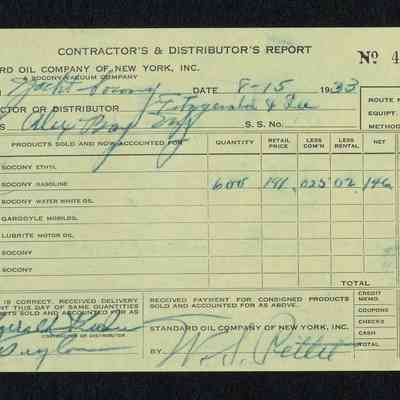 CONTRACTOR'S & DISTRIBUTOR'S REPORT
No 4
ARD OIL COMPANY OF NEW YORK, INC.
A SOCONY-VACUUM COMPANY
Yacht Socony DATE 8-15 1933
ROUTE N
CTOR OR DISTRIBUTOR Fitzgerald & Lee
EQUIPT.
S Alex Bay NY S. S. No.
METHOD
PRODUCTS SOLD AND NOW ACCOUNTED FOR QUANTITY RETAIL PRICE LESS COM'N LESS RENTAL NET
SOCONY ETHYL
SOCONY GASOLINE 600 191 .025 02 146
SOCONY WATER WHITE OIL
GARGOYLE MOBILOIL
LUBRITE MOTOR OIL
SOCONY
SOCONY
TOTAL
IS CORRECT. RECEIVED DELIVERY
ENT THIS DAY OF SAME QUANTITIES
CTS SOLD AND ACCOUNTED FOR AS
CONTRACTOR OR DISTRIBUTOR.
RECEIVED PAYMENT FOR CONSIGNED PRODUCTS
SOLD AS ABOVE.
STANDARD OIL COMPANY OF NEW YORK, INC.
BY W. S. Pettit
CREDIT MEMO.
COUPONS
CHECKS
CASH
TOTAL